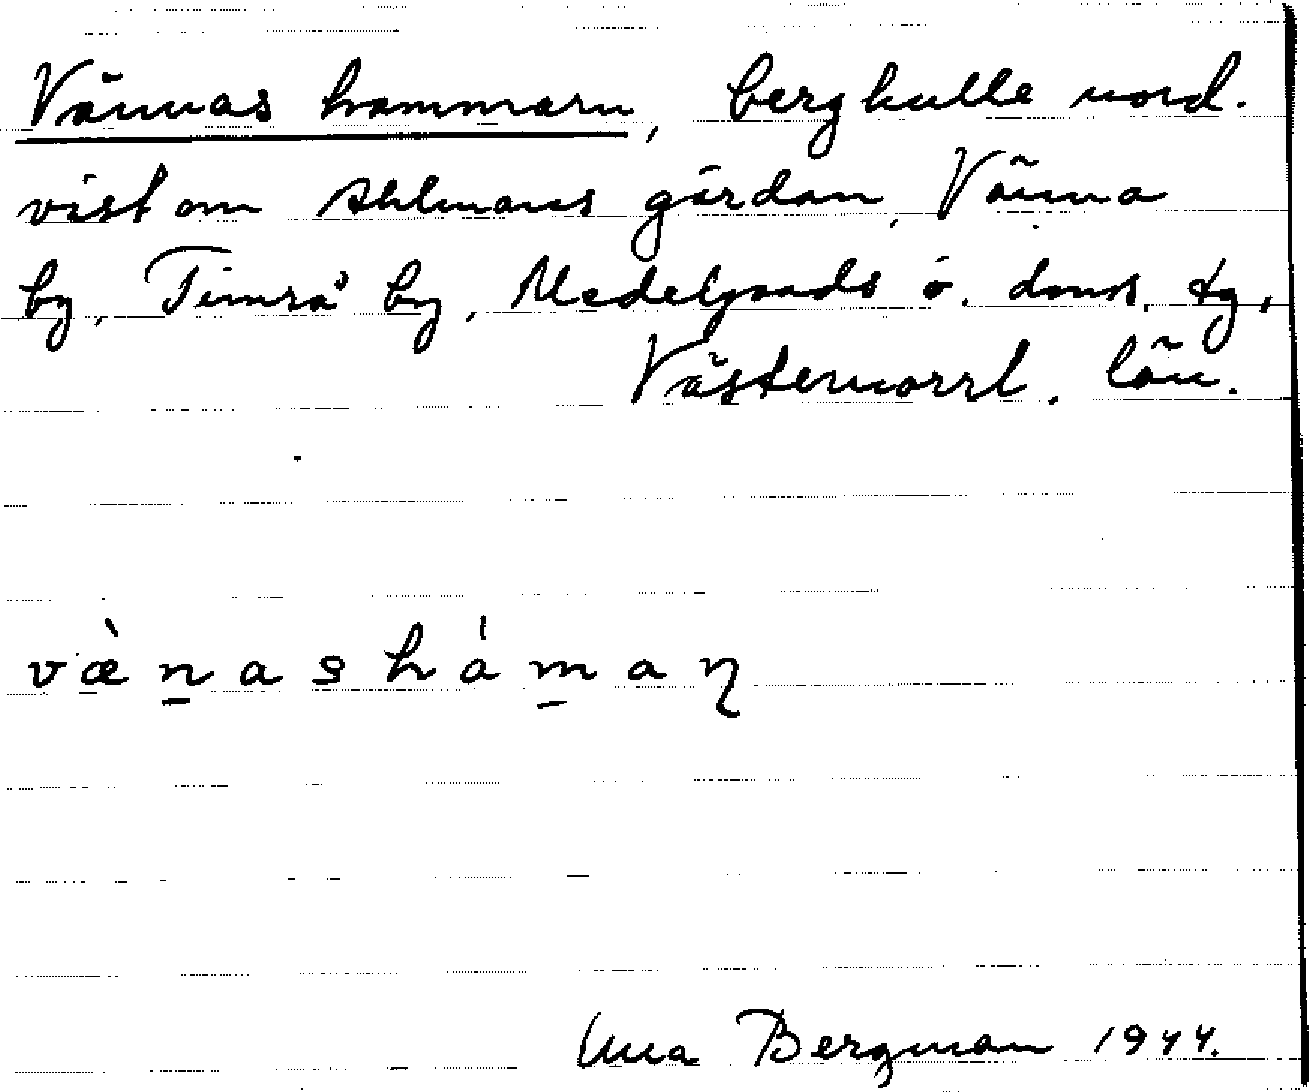 Vännas hammarn, bergkulle nord.
väst om Ahlmans gårdan, Vänna
by, Timrå by, Medelpads ö. doms. dg,
Västernorrl. län.
v æ̀ n̲ a s h á m̲ a ɳ
Una Bergman 1944.